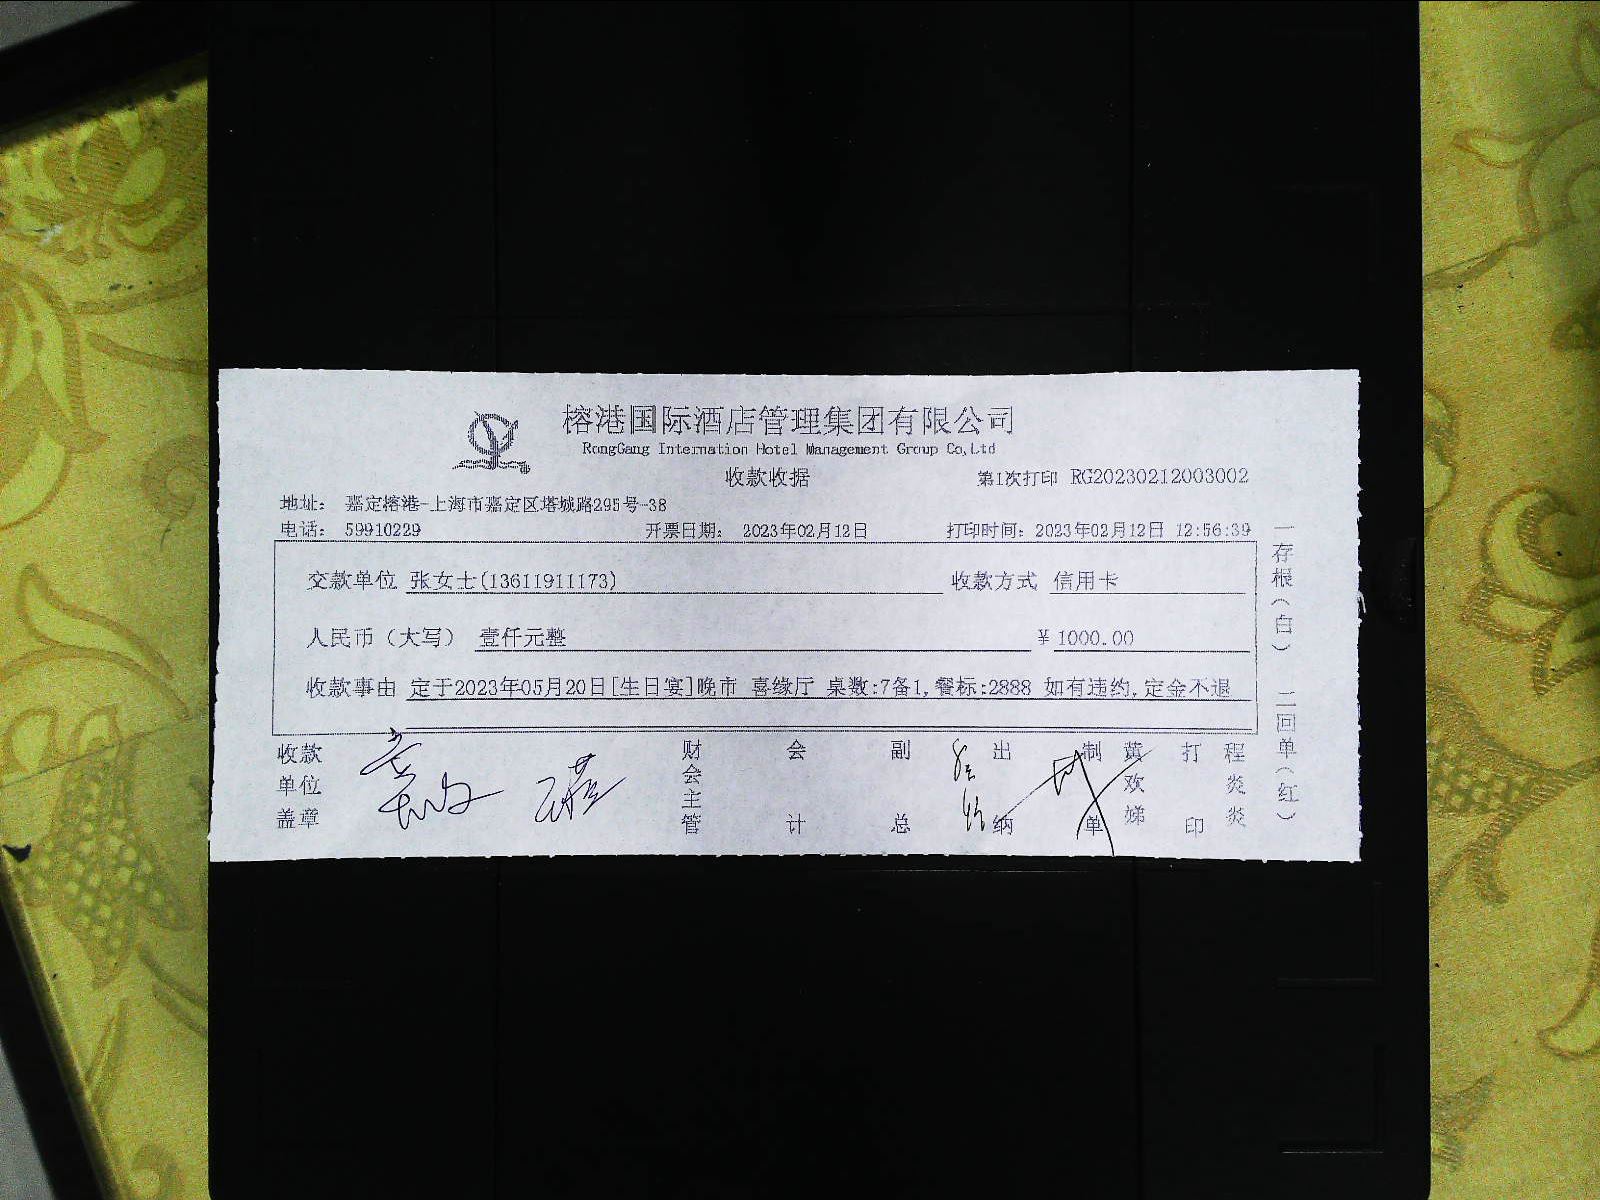 榕港国际酒店管理集团有限公司
RongGang Internation Hotel Management Group Co,Ltd
收款收据
第1次打印 RG20230212003002
地址: 嘉定榕港-上海市嘉定区塔城路295号-38
电话: 59910229 开票日期: 2023年02月12日 打印时间: 2023年02月12日 12:56:39
交款单位 张女士(13611911173) 收款方式 信用卡
人民币（大写） 壹仟元整 ¥ 1000.00
收款事由 定于2023年05月20日[生日宴]晚市 喜缘厅 桌数:7备1,餐标:2888 如有违约,定金不退
收款单位盖章
财会主管
会计
副总
出纳
制单 黄欢娣
打印 程炎炎
一存根（白） 二回单（红）